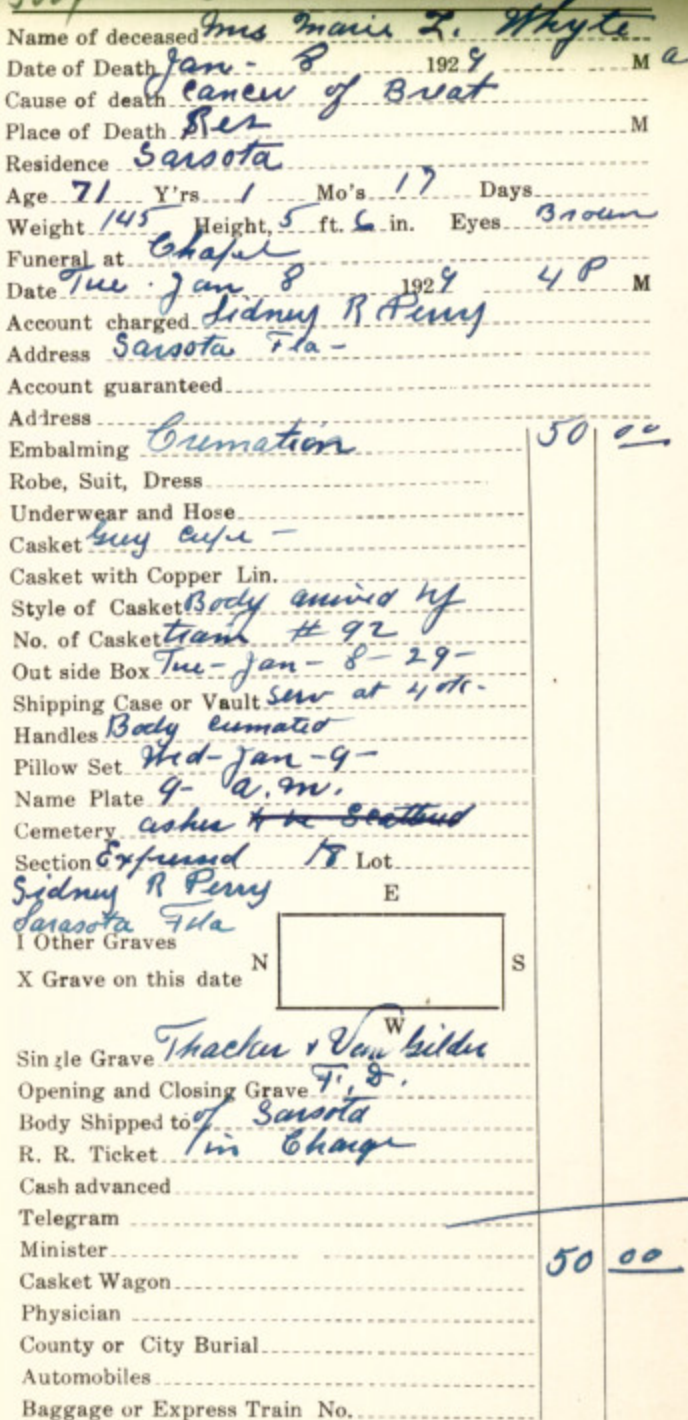 Name of deceased Mrs Marie L. Whyte
Date of Death Jan - 8 1929 M a
Cause of death Cancer of Breat
Place of Death Res M
Residence Sarsota
Age 71 Y'rs 1 Mo's 17 Days
Weight 145 Height, 5 ft. 6 in. Eyes Brown
Funeral at Chapel
Date Tue. Jan 8 1929 4 P M
Account charged Sidney R Perry
Address Sarsota Fla -
Account guaranteed
Address
Embalming Cremation 50 00
Robe, Suit, Dress
Underwear and Hose
Casket Grey Crepe -
Casket with Copper Lin.
Style of Casket Body arrived
No. of Casket train # 92
Out side Box Tue - Jan - 8 - 29 -
Shipping Case or Vault Serv at 4 ok -
Handles Body cremated
Pillow Set Wed - Jan - 9 -
Name Plate 9 - a.m.
Cemetery ashes to be Scattered
Section Expressed to Lot
Sidney R Perry
Sarasota Fla
E
I Other Graves
N S
X Grave on this date
W
Single Grave Thacker & Van Gilder
Opening and Closing Grave F. D.
Body Shipped to of Sarsota
R. R. Ticket in Charge
Cash advanced
Telegram
Minister 50 00
Casket Wagon
Physician
County or City Burial
Automobiles
Baggage or Express Train No.